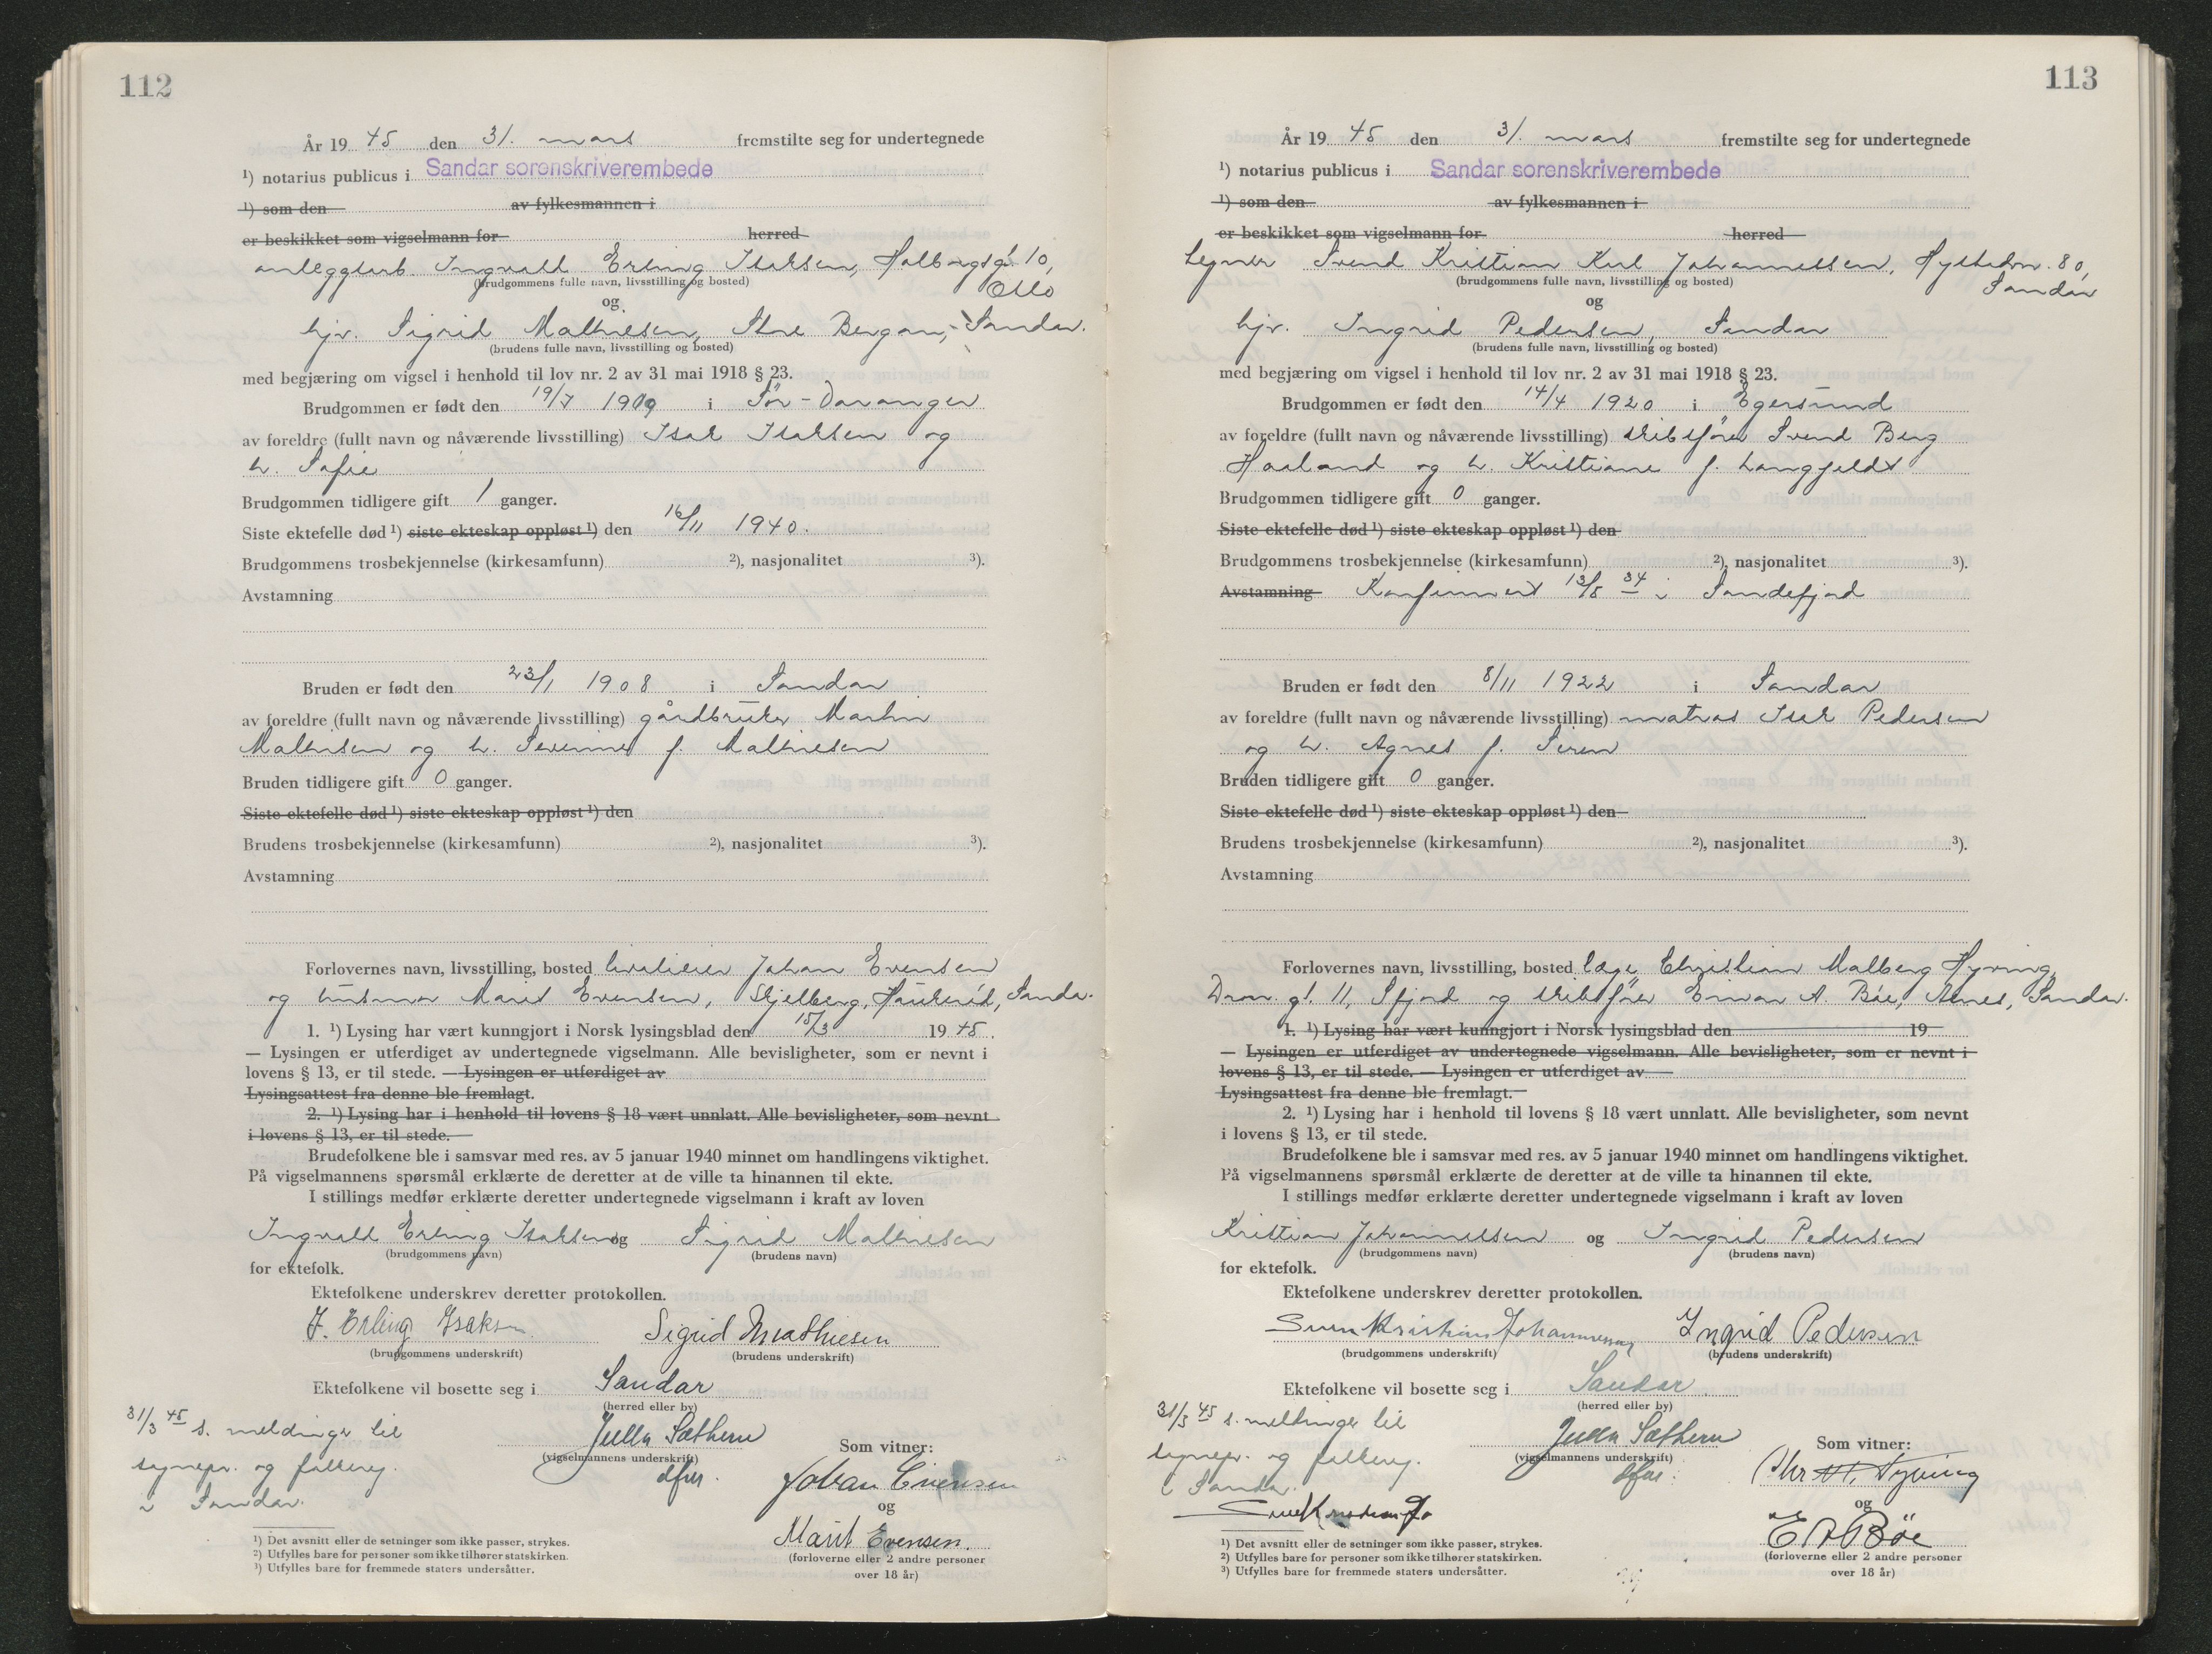 112
År 19 45 den 31. mars fremstilte seg for undertegnede
¹) notarius publicus i Sandar sorenskriverembede
¹) som den av fylkesmannen i
er beskikket som vigselmann for herred
anleggsarb. Ingvald Erling Isaksen, Holbergsgt. 10,
Oslo
(brudgommens fulle navn, livsstilling og bosted)
og
hjv. Sigrid Mathiesen, Store Bergan, Sandar.
(brudens fulle navn, livsstilling og bosted)
med begjæring om vigsel i henhold til lov nr. 2 av 31 mai 1918 § 23.
Brudgommen er født den 19/7 1909 i Sör-Varanger
av foreldre (fullt navn og nåværende livsstilling) Isak Isaksen og
h. Sofie
Brudgommen tidligere gift 1 ganger.
Siste ektefelle død ¹) siste ekteskap oppløst ¹) den 16/11 1940.
Brudgommens trosbekjennelse (kirkesamfunn) ²), nasjonalitet ³).
Avstamning
Bruden er født den 23/1 1908 i Sandar
av foreldre (fullt navn og nåværende livsstilling) gårdbruker Martin
Mathisen og h. Severine f. Mathiesen
Bruden tidligere gift 0 ganger.
Siste ektefelle død ¹) siste ekteskap oppløst ¹) den
Brudens trosbekjennelse (kirkesamfunn) ²), nasjonalitet ³).
Avstamning
Forlovernes navn, livsstilling, bosted Johan Evensen
og husmor Marit Evensen, Skjelberg, Haukeröd, Sandar.
1. ¹) Lysing har vært kunngjort i Norsk lysingsblad den 15/3 19 45.
— Lysingen er utferdiget av undertegnede vigselmann. Alle bevisligheter, som er nevnt i
lovens § 13, er til stede. — Lysingen er utferdiget av
Lysingsattest fra denne ble fremlagt.
2. ¹) Lysing har i henhold til lovens § 18 vært unnlatt. Alle bevisligheter, som nevnt
i lovens § 13, er til stede.
Brudefolkene ble i samsvar med res. av 5 januar 1940 minnet om handlingens viktighet.
På vigselmannens spørsmål erklærte de deretter at de ville ta hinannen til ekte.
I stillings medfør erklærte deretter undertegnede vigselmann i kraft av loven
Ingvald Erling Isaksen og Sigrid Mathiesen
(brudgommens navn) (brudens navn)
for ektefolk.
Ektefolkene underskrev deretter protokollen.
J. Erling Isaksen Sigrid Mathiesen
(brudgommens underskrift) (brudens underskrift)
Ektefolkene vil bosette seg i Sandar
(herred eller by)
31/3 45 s. meldinger til
sognepr. og folkereg.
i Sandar.
Julla Sæthern
(vigselmannens underskrift)
dfm.
Som vitner:
Johan Evensen
og
Marit Evensen.
(forloverne eller 2 andre personer
over 18 år)
¹) Det avsnitt eller de setninger som ikke passer, strykes.
²) Utfylles bare for personer som ikke tilhører statskirken.
³) Utfylles bare for fremmede staters undersåtter.
113
År 19 45 den 31. mars fremstilte seg for undertegnede
¹) notarius publicus i Sandar sorenskriverembede
¹) som den av fylkesmannen i
er beskikket som vigselmann for herred
tegner Svend Kristian Johannessen, 80,
Sandar
(brudgommens fulle navn, livsstilling og bosted)
og
hjv. Ingrid Pedersen, Sandar
(brudens fulle navn, livsstilling og bosted)
med begjæring om vigsel i henhold til lov nr. 2 av 31 mai 1918 § 23.
Brudgommen er født den 14/4 1920 i Egersund
av foreldre (fullt navn og nåværende livsstilling) skibsförer Svend Berg
Haaland og h. Kristiane f. Langfeldt
Brudgommen tidligere gift 0 ganger.
Siste ektefelle død ¹) siste ekteskap oppløst ¹) den
Brudgommens trosbekjennelse (kirkesamfunn) ²), nasjonalitet ³).
Avstamning Konfirmert 13/5 34 i Sandefjord
Bruden er født den 8/11 1922 i Sandar
av foreldre (fullt navn og nåværende livsstilling) matros Isak Pedersen
og h. Agnes f. Siren
Bruden tidligere gift 0 ganger.
Siste ektefelle død ¹) siste ekteskap oppløst ¹) den
Brudens trosbekjennelse (kirkesamfunn) ²), nasjonalitet ³).
Avstamning
Forlovernes navn, livsstilling, bosted læge Christian Malberg
Dron. gt. 11, Sfjord og skibsförer Einar A. Böe, Sandar.
1. ¹) Lysing har vært kunngjort i Norsk lysingsblad den 19
— Lysingen er utferdiget av undertegnede vigselmann. Alle bevisligheter, som er nevnt i
lovens § 13, er til stede. — Lysingen er utferdiget av
Lysingsattest fra denne ble fremlagt.
2. ¹) Lysing har i henhold til lovens § 18 vært unnlatt. Alle bevisligheter, som nevnt
i lovens § 13, er til stede.
Brudefolkene ble i samsvar med res. av 5 januar 1940 minnet om handlingens viktighet.
På vigselmannens spørsmål erklærte de deretter at de ville ta hinannen til ekte.
I stillings medfør erklærte deretter undertegnede vigselmann i kraft av loven
Kristian Johannessen og Ingrid Pedersen
(brudgommens navn) (brudens navn)
for ektefolk.
Ektefolkene underskrev deretter protokollen.
Sven Kristian Johannessen Ingrid Pedersen
(brudgommens underskrift) (brudens underskrift)
Ektefolkene vil bosette seg i Sandar
(herred eller by)
31/3 45 s. meldinger til
sognepr. og folkereg.
i Sandar.
Julla Sæthern
(vigselmannens underskrift)
dfm.
Som vitner:
Chr
og
E A Böe
(forloverne eller 2 andre personer
over 18 år)
¹) Det avsnitt eller de setninger som ikke passer, strykes.
²) Utfylles bare for personer som ikke tilhører statskirken.
³) Utfylles bare for fremmede staters undersåtter.